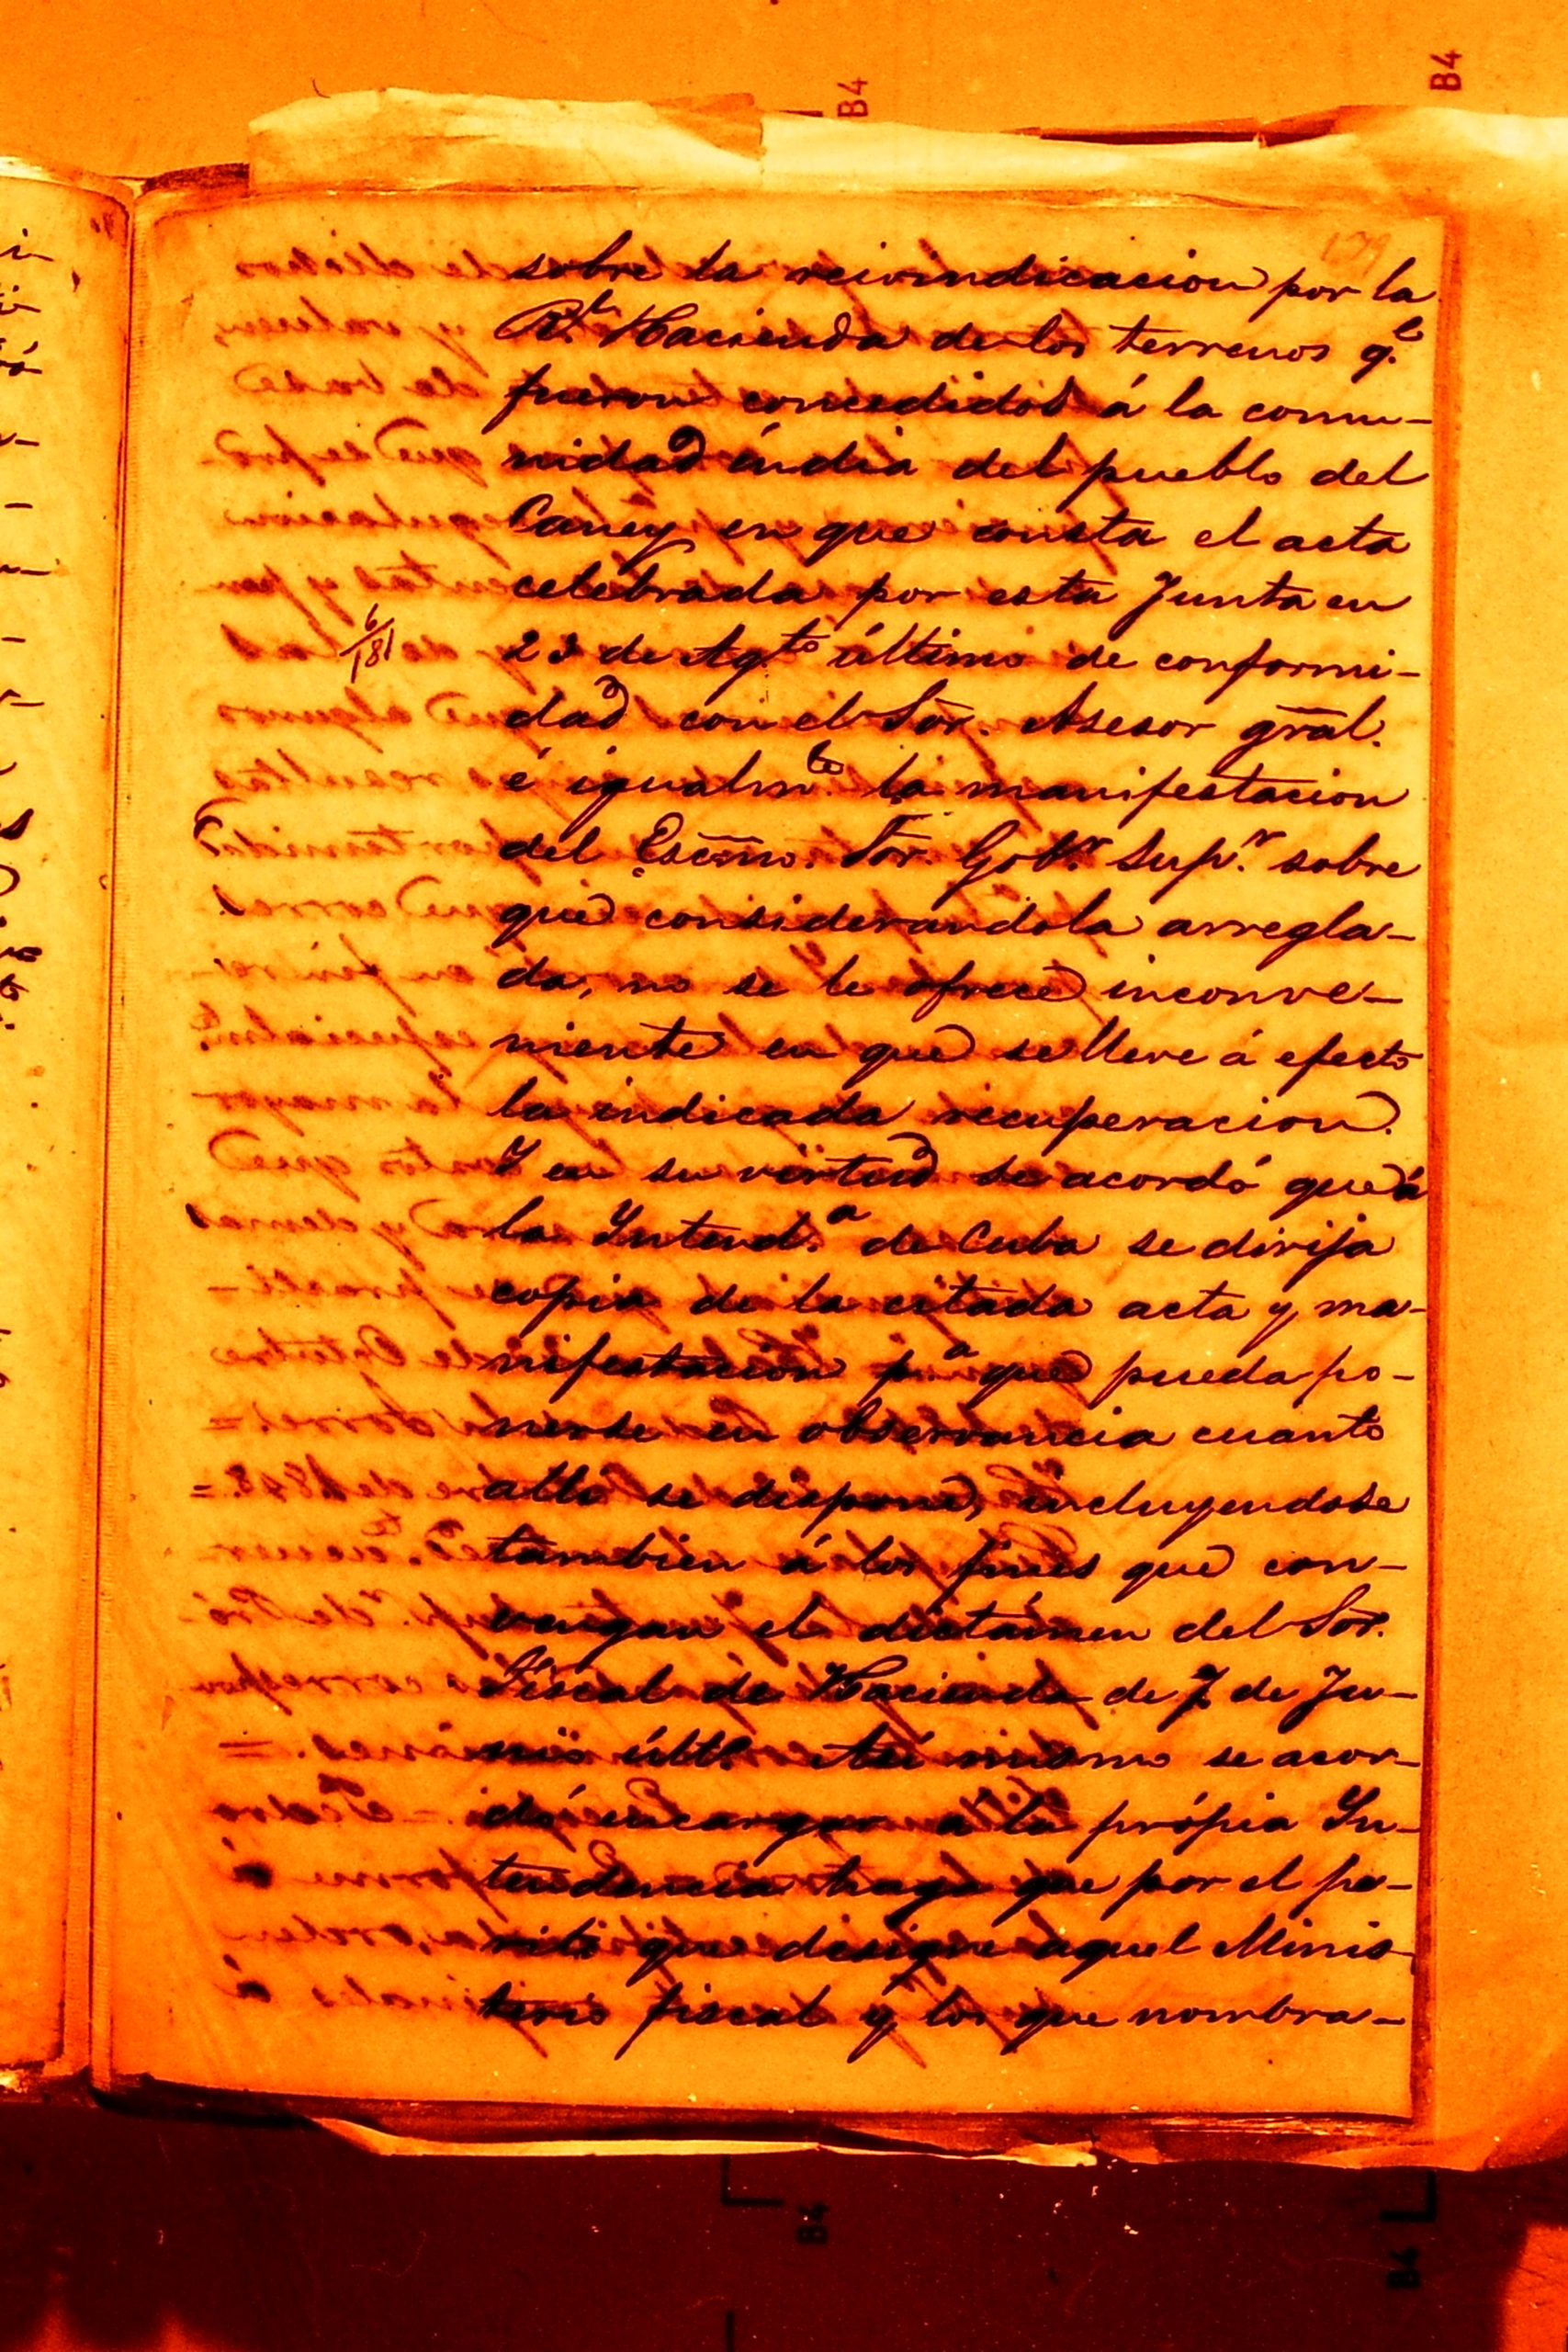 179
sobre la reivindicacion por la
Rl. Hacienda de los terrenos q.e
fueron concedidos á la comu-
nidad índia del pueblo del
Caney en que consta el acta
celebrada por esta Junta en
6/181
23 de Agto último de conformi-
dad con el Sor. Asesor gral.
é igualm.te la manifestacion
del Escmo. Sor. Gob.r Sup.r sobre
que considerandola arregla-
da, no se le ofrece inconve-
niente en que se lleve á efecto
la indicada recuperacion.
Y en su virtud se acordó que á
la Intend.a de Cuba se dirija
copia de la citada acta y ma-
nifestacion p.a que pueda po-
nerse en observancia cuanto
alla se dispone, incluyendose
tambien á los fines que con-
vengan el dictámen del Sor.
Fiscal de Hacienda de 7 de Ju-
nio últo. Asi mismo se acor-
dó encargar a la própia In-
tendencia haga que por el pe-
rito que designe aquel Minis
terio fiscal y los que nombra-
B4
B4
B4
B4